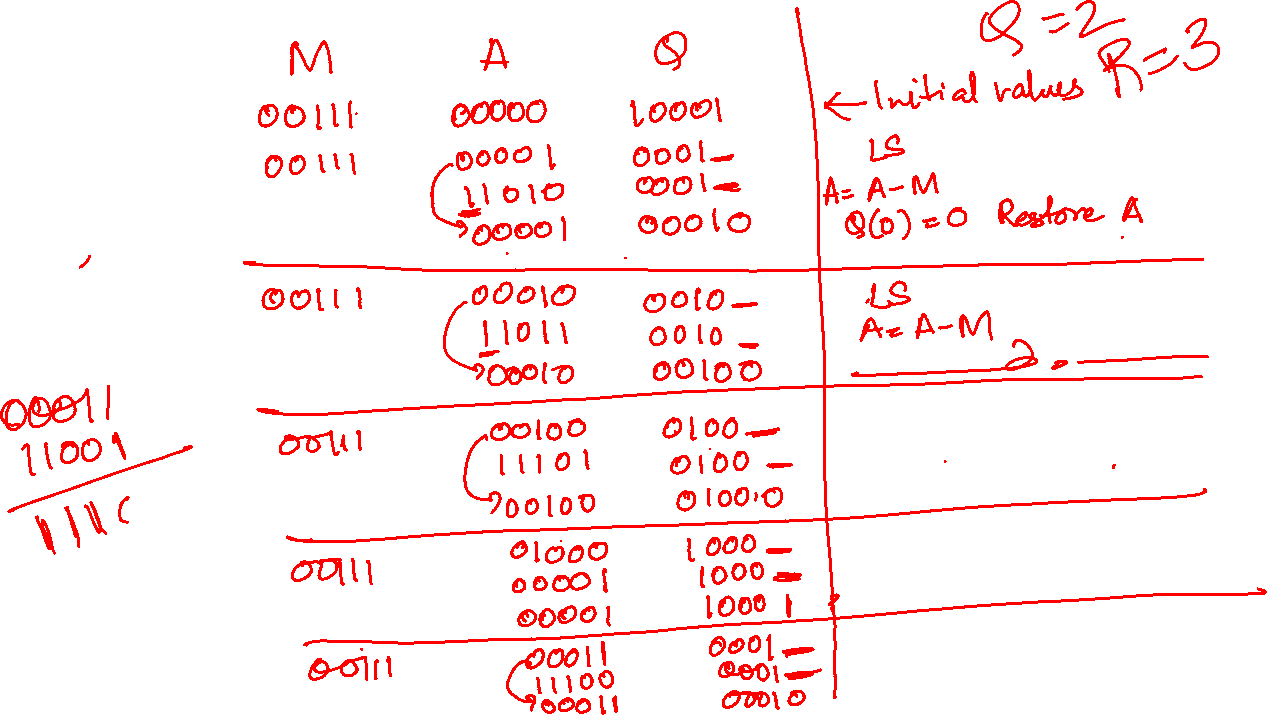 Q = 2
R = 3
M A Q
00111 00000 10001 ← Initial values
00111 00001 0001_ LS
11010 0001_ A = A - M
00001 00010 Q(0) = 0 Restore A
00111 00010 0010_ LS
11011 0010_ A = A - M
00010 00100
00111 00100 0100_
11101 0100_
00100 01000
00111 01000 1000_
00001 1000_
00001 10001
00111 00011 0001_
11100 0001_
00011 00010
00011
11001